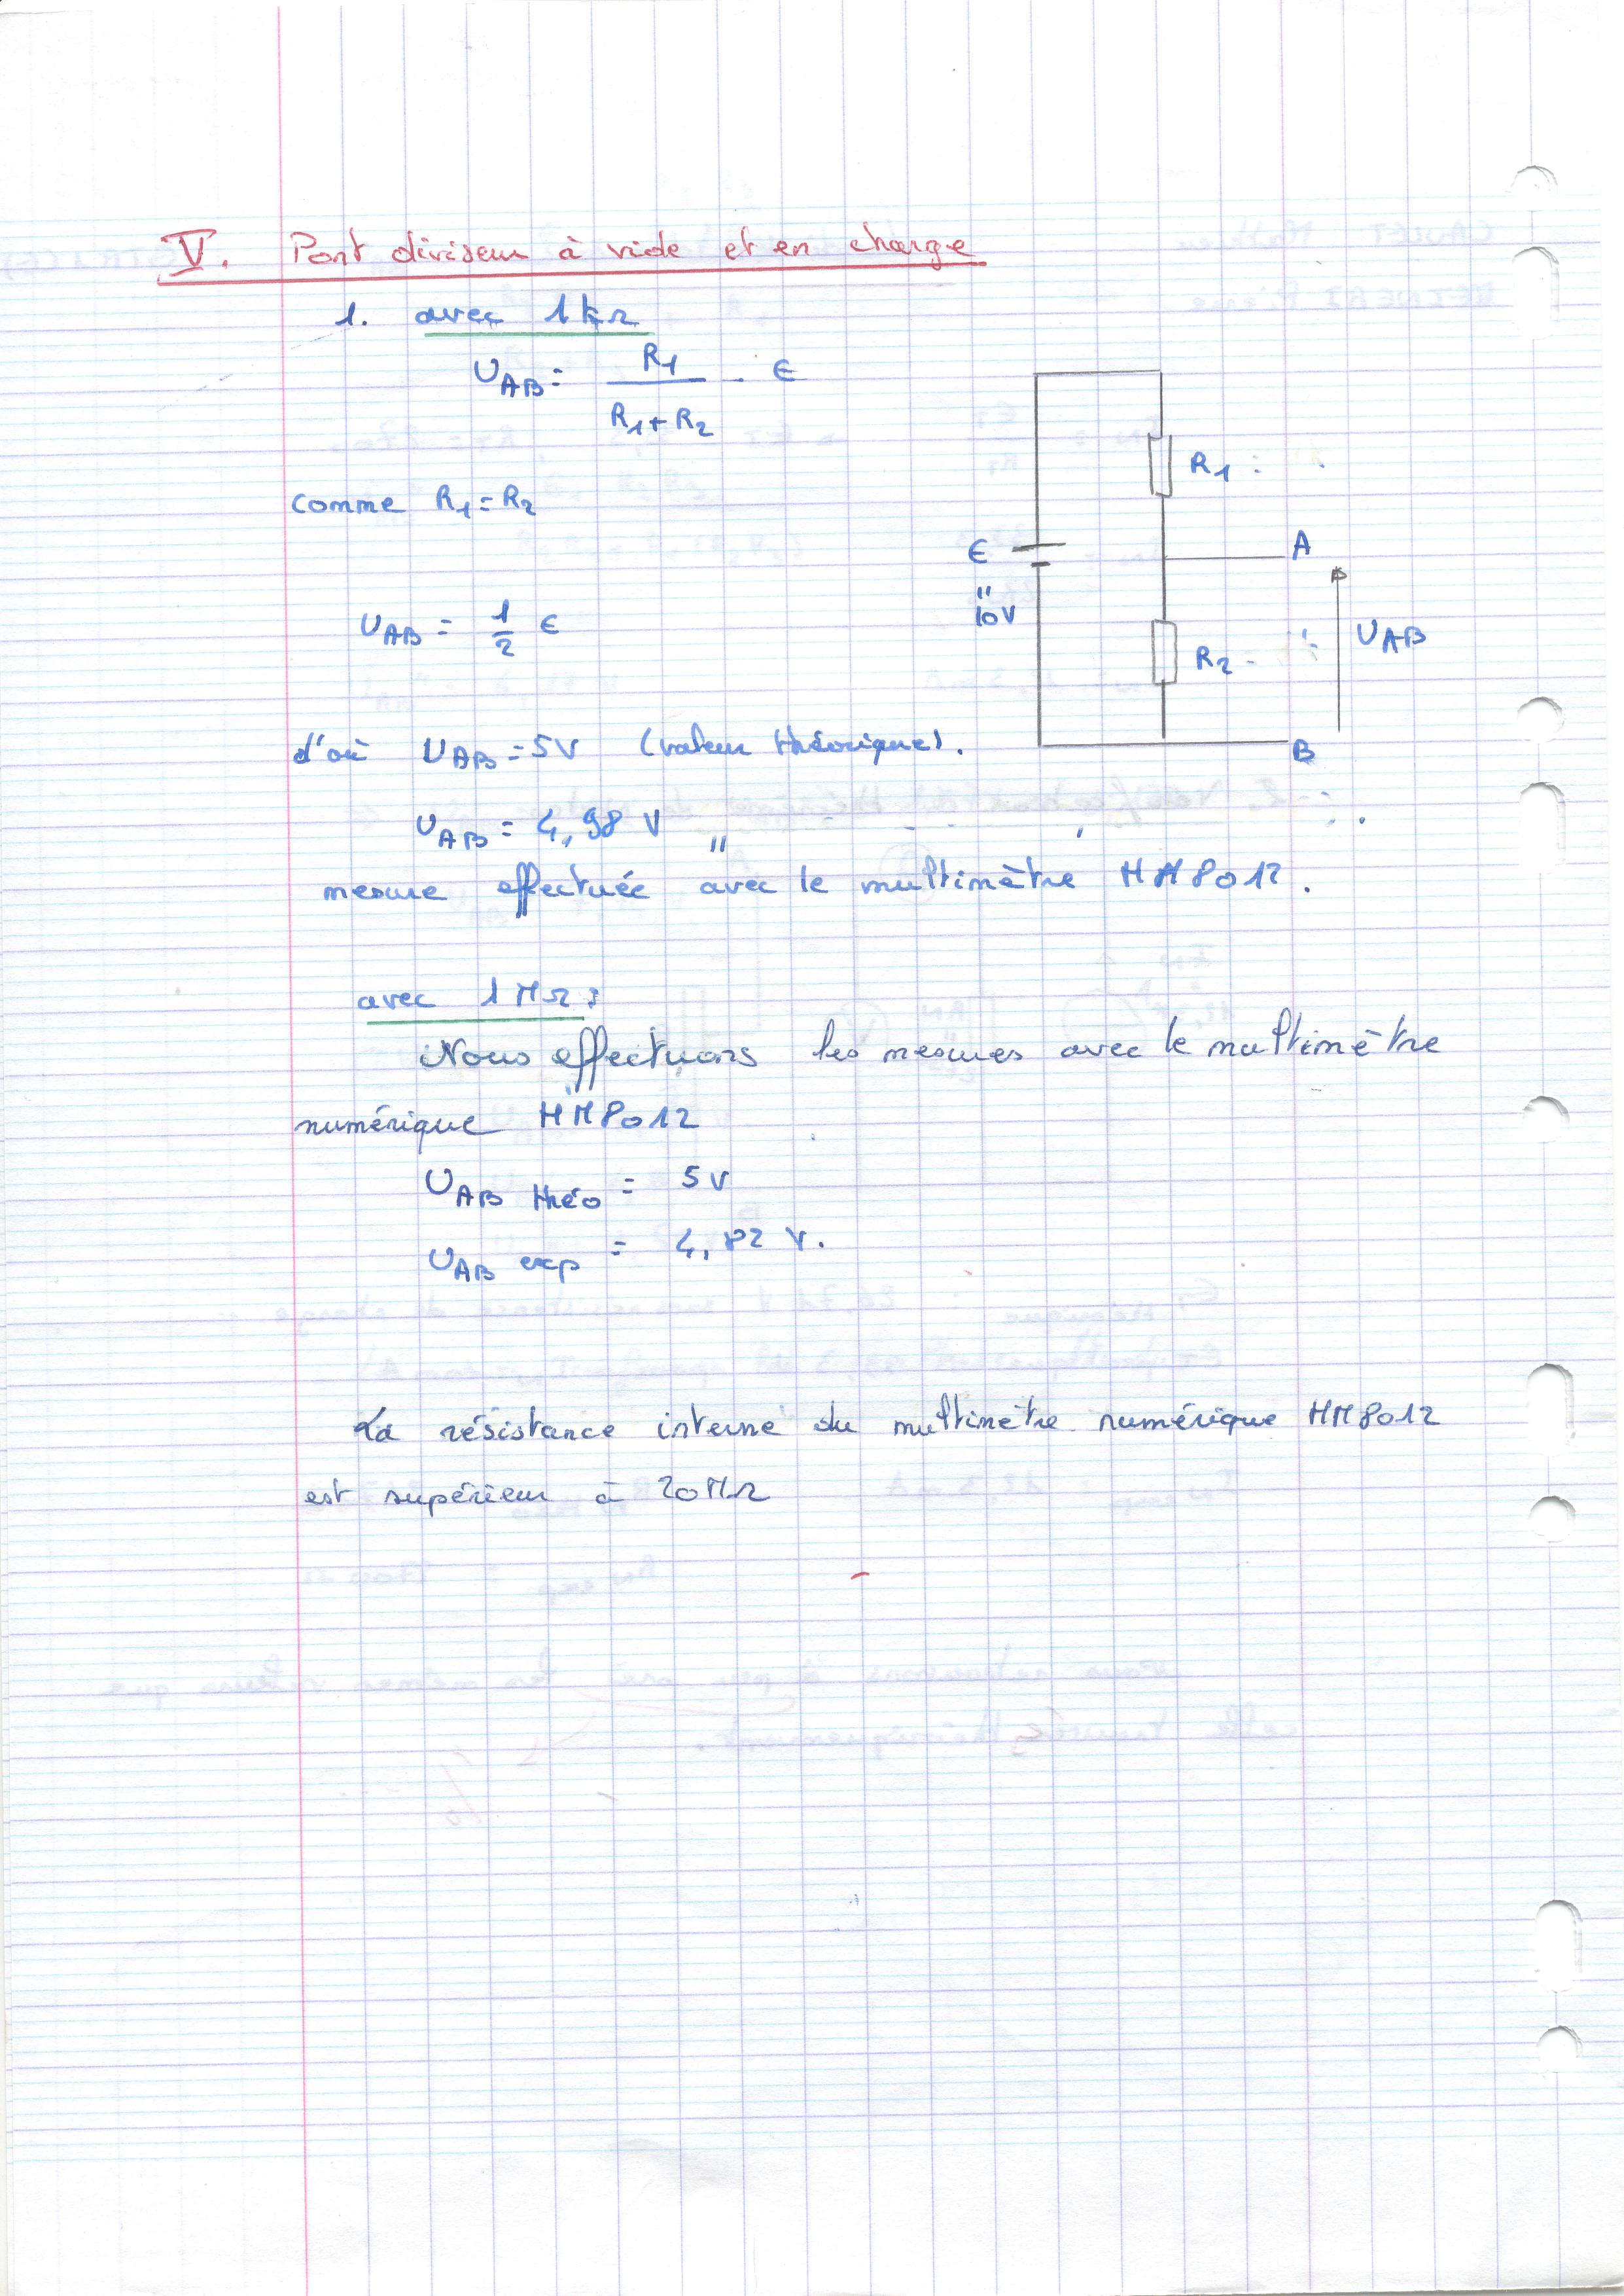 V. Pont diviseur à vide et en charge
1. avec 1 kΩ
U_AB = R1 / (R1 + R2) . ϵ
comme R1 = R2
U_AB = 1/2 ϵ
d'où U_AB = 5V (valeur théorique).
U_AB = 4,98 V "
mesure effectuée avec le multimètre HM8012.
R1 :
ϵ
"
10V
A
R2
U_AB
B
avec 1 MΩ :
Nous effectuons les mesures avec le multimètre
numérique HM8012
U_AB théo = 5V
U_AB exp = 4,82 V.
La résistance interne du multimètre numérique HM8012
est supérieur à 20 MΩ